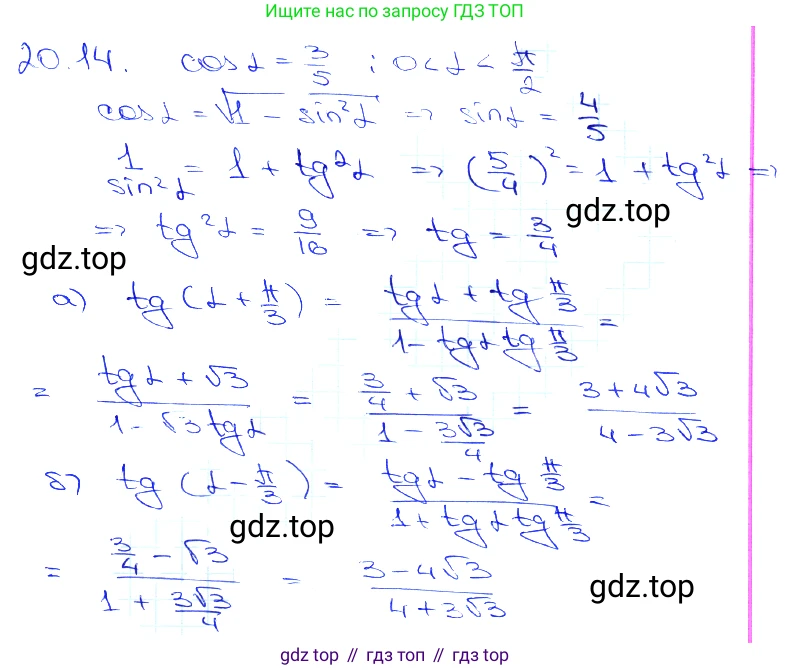 Ищите нас по запросу ГДЗ ТОП
20.14. cos α = 3/5 ; 0 < α < π/2
cos α = √(1 - sin²α) => sin α = 4/5
1/sin²α = 1 + tg²α => (5/4)² = 1 + tg²α =>
=> tg²α = 9/16 => tg = 3/4
gdz.top
gdz.top
а) tg (α + π/3) = (tg α + tg π/3)/(1 - tg α tg π/3) =
= (tg α + √3)/(1 - √3 tg α) = (3/4 + √3)/(1 - 3√3/4) = (3 + 4√3)/(4 - 3√3)
б) tg (α - π/3) = (tg α - tg π/3)/(1 + tg α tg π/3) =
gdz.top
= (3/4 - √3)/(1 + 3√3/4) = (3 - 4√3)/(4 + 3√3)
gdz.top
gdz top // гдз топ // gdz top